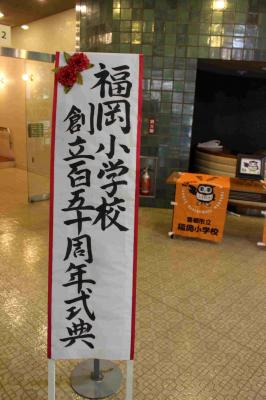 福岡小学校
創立百五十周年式典
豊橋市立
福岡小学校
2